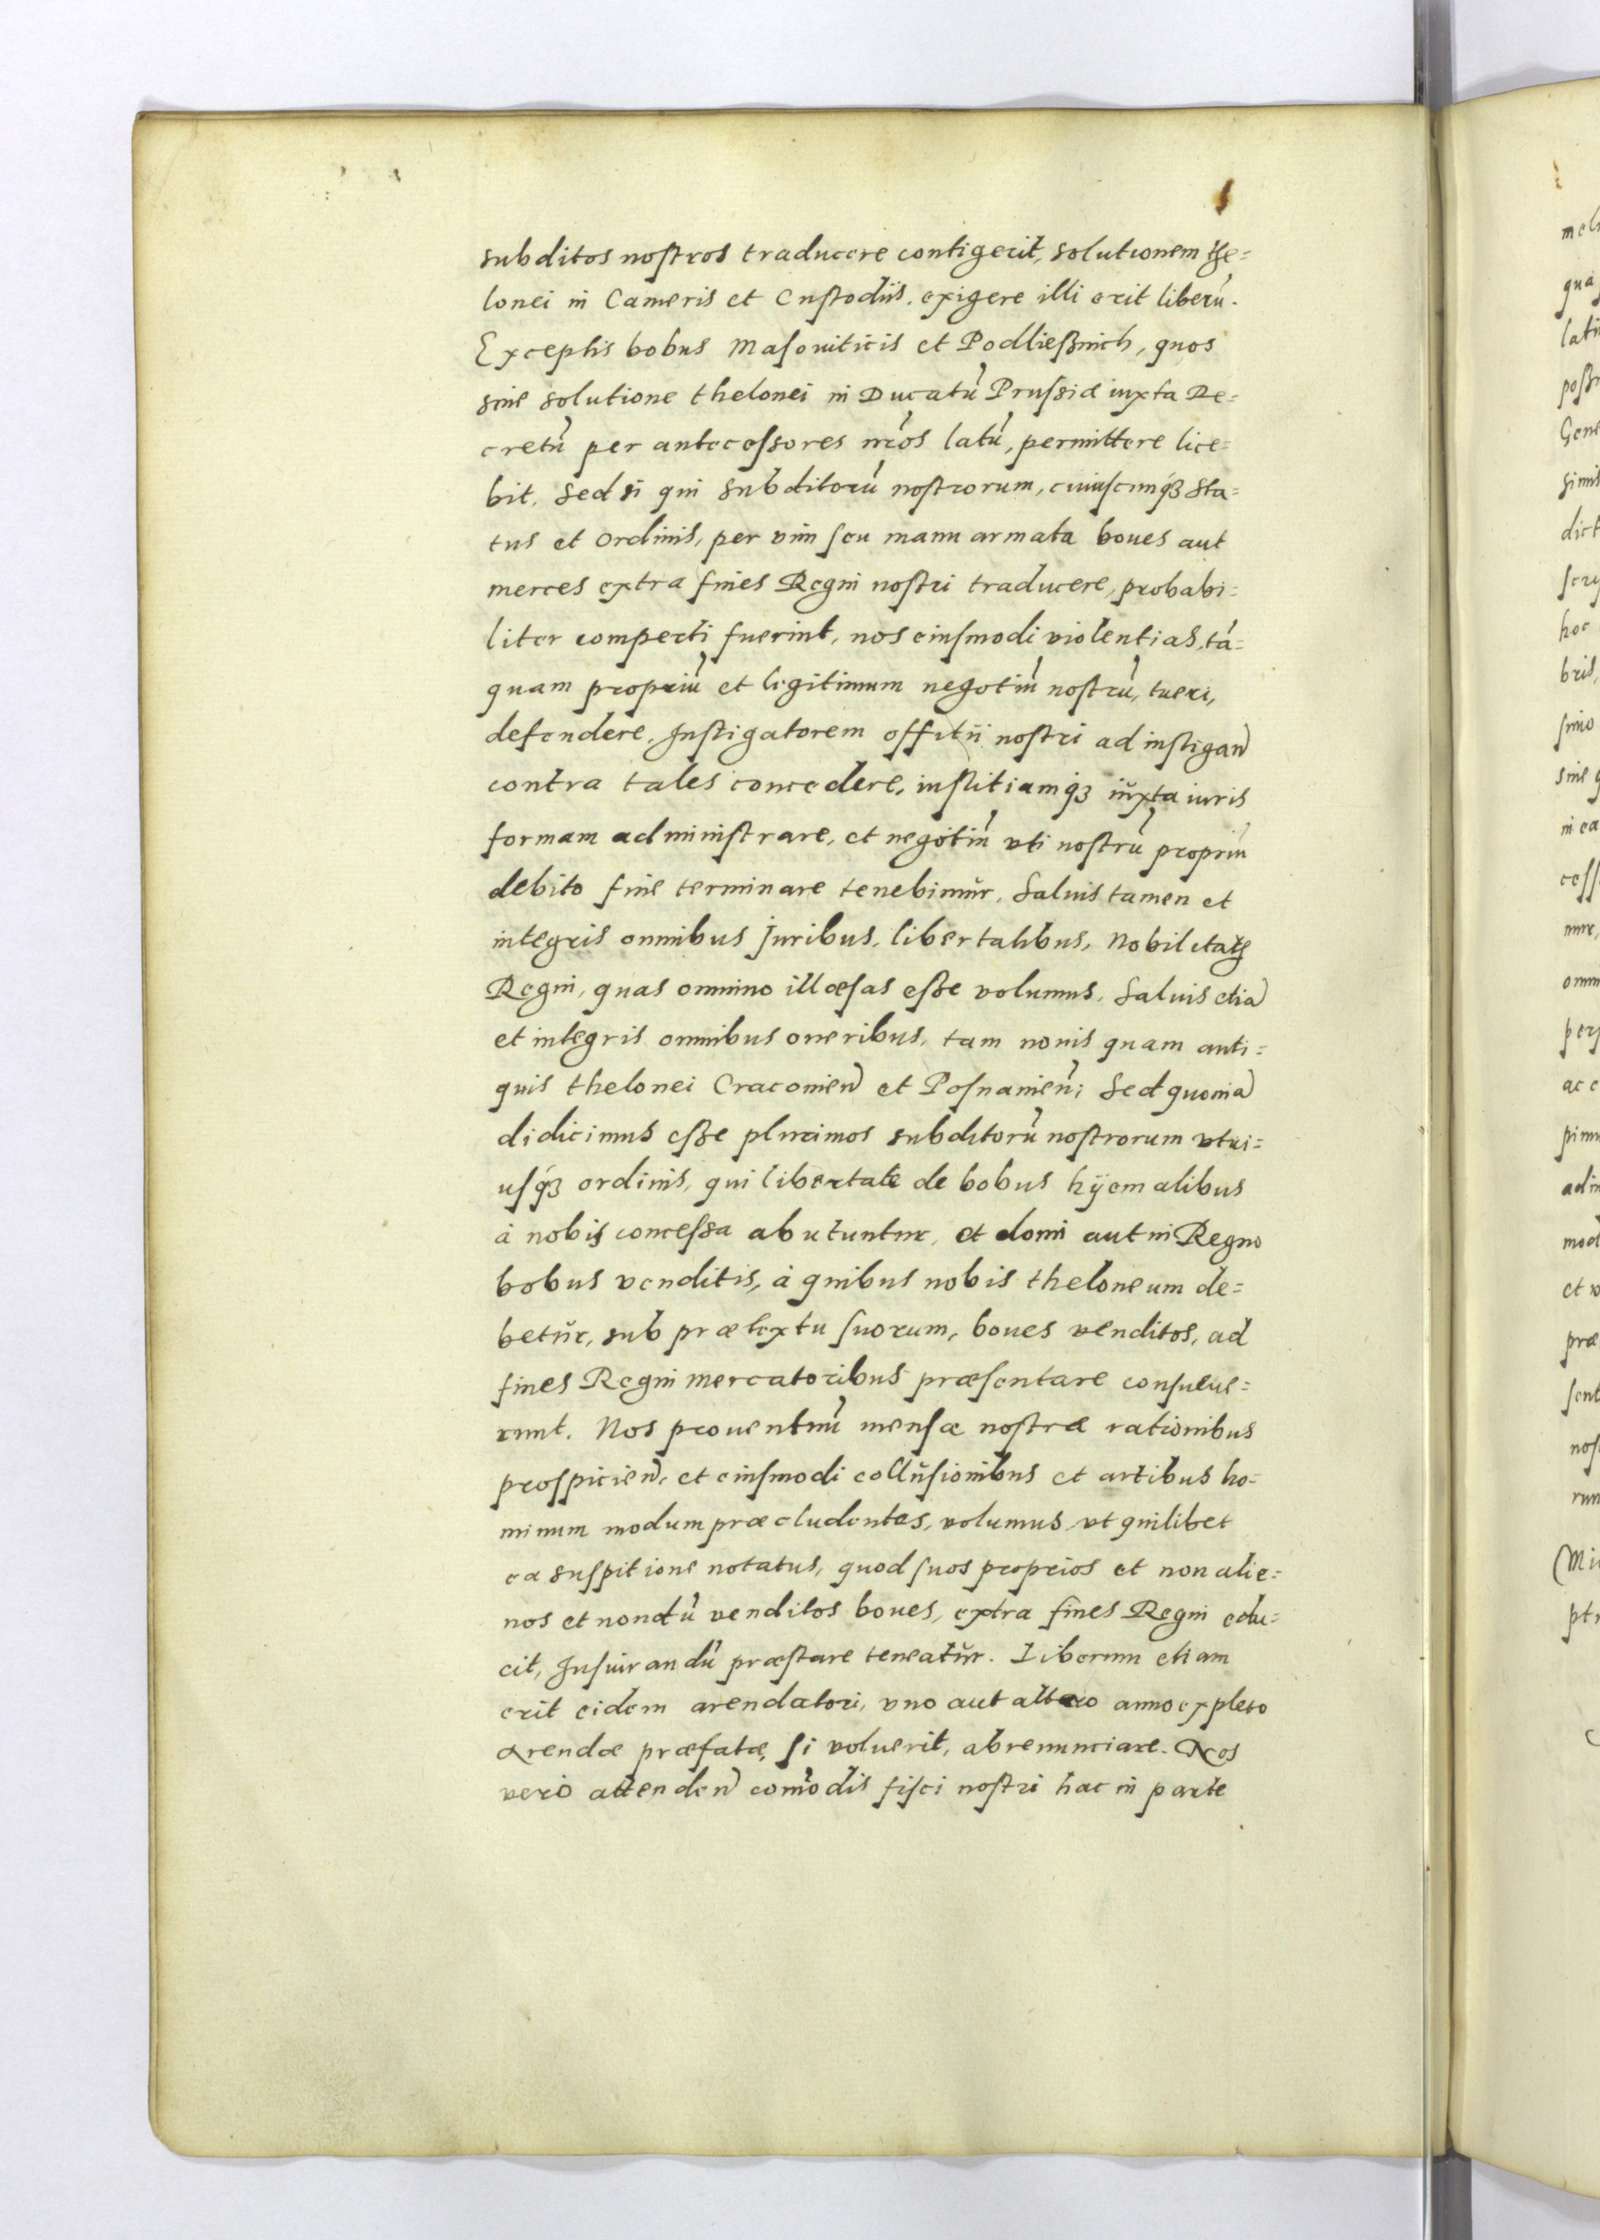 subditos nostros traducere contigerit, solutionem the=
lonei in Cameris et Custodiis, exigere illi erit liberū.
Exceptis bobus Masouiticis et Podlieszinich, quos
sine solutione thelonei in Ducatū Prussiæ iuxta De=
cretū per antecessores nr̄os latū, permittere lice=
bit, Sed si qui subditorū nostrorum, cuiuscunq₃ Sta=
tus et ordinis, per vim seu manu armata boues aut
merces extra fines Regni nostri traducere, probabi=
liter comperti fuerint, nos eiusmodi violentias, tā=
quam propriū et legitimum negotiū nostrū, tueri,
defendere, Instigatorem offitii nostri ad instigan̄
contra tales concedere, iustitiamq₃ iuxta iuris
formam administrare, et negotiū vti nostrū propriū
debito fine terminare tenebimur, Saluis tamen et
integris omnibus Juribus, libertatibus, Nobilitatis
Regni, quas omnino illæsas esse volumus, Saluis etiā
et integris omnibus oneribus, tam nouis quam anti=
quis thelonei Cracouien̄ et Posnanien̄; Sed quoniā
didicimus esse plurimos subditorū nostrorum vtri=
usq₃ ordinis, qui libertate de bobus hÿemalibus
à nobis concessa abutuntur, et domi aut in Regno
bobus venditis, à quibus nobis theloneum de=
betur, sub prætextu suorum, boues venditos, ad
fines Regni mercatoribus præsentare consueue=
runt. Nos prouentuū mensæ nostræ rationibus
prospicien̄, et eiusmodi collusionibus et artibus ho=
minum modum præcludentes, volumus vt quilibet
ea suspitione notatus, quod suos proprios et non alie=
nos et nondū venditos boues, extra fines Regni edu=
cit, Jusiurandū præstare teneatur. Liberum etiam
erit eidem arendatori, vno aut altero anno expleto
arendæ præfatæ, si voluerit, abrenunciare. Nos
vero attenden̄ com̄odis fisci nostri hac in parte